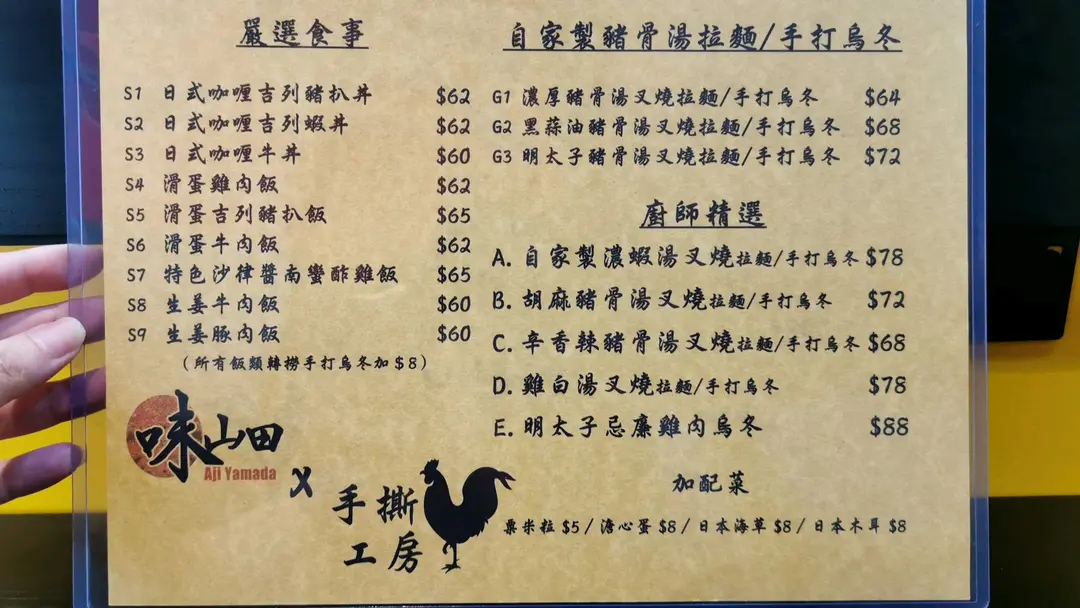 嚴選食事
S1 日式咖喱吉列豬扒丼 $62
S2 日式咖喱吉列蝦丼 $62
S3 日式咖喱牛丼 $60
S4 滑蛋雞肉飯 $62
S5 滑蛋吉列豬扒飯 $65
S6 滑蛋牛肉飯 $62
S7 特色沙律醬南蠻酢雞飯 $65
S8 生姜牛肉飯 $60
S9 生姜豚肉飯 $60
(所有飯類轉撈手打烏冬加$8)
味山田
Aji Yamada
X
手撕
工房
自家製豬骨湯拉麵/手打烏冬
G1 濃厚豬骨湯叉燒拉麵/手打烏冬 $64
G2 黑蒜油豬骨湯叉燒拉麵/手打烏冬 $68
G3 明太子豬骨湯叉燒拉麵/手打烏冬 $72
廚師精選
A. 自家製濃蝦湯叉燒拉麵/手打烏冬 $78
B. 胡麻豬骨湯叉燒拉麵/手打烏冬 $72
C. 辛香辣豬骨湯叉燒拉麵/手打烏冬 $68
D. 雞白湯叉燒拉麵/手打烏冬 $78
E. 明太子忌廉雞肉烏冬 $88
加配菜
粟米粒 $5/溏心蛋 $8/日本海草 $8/日本木耳 $8